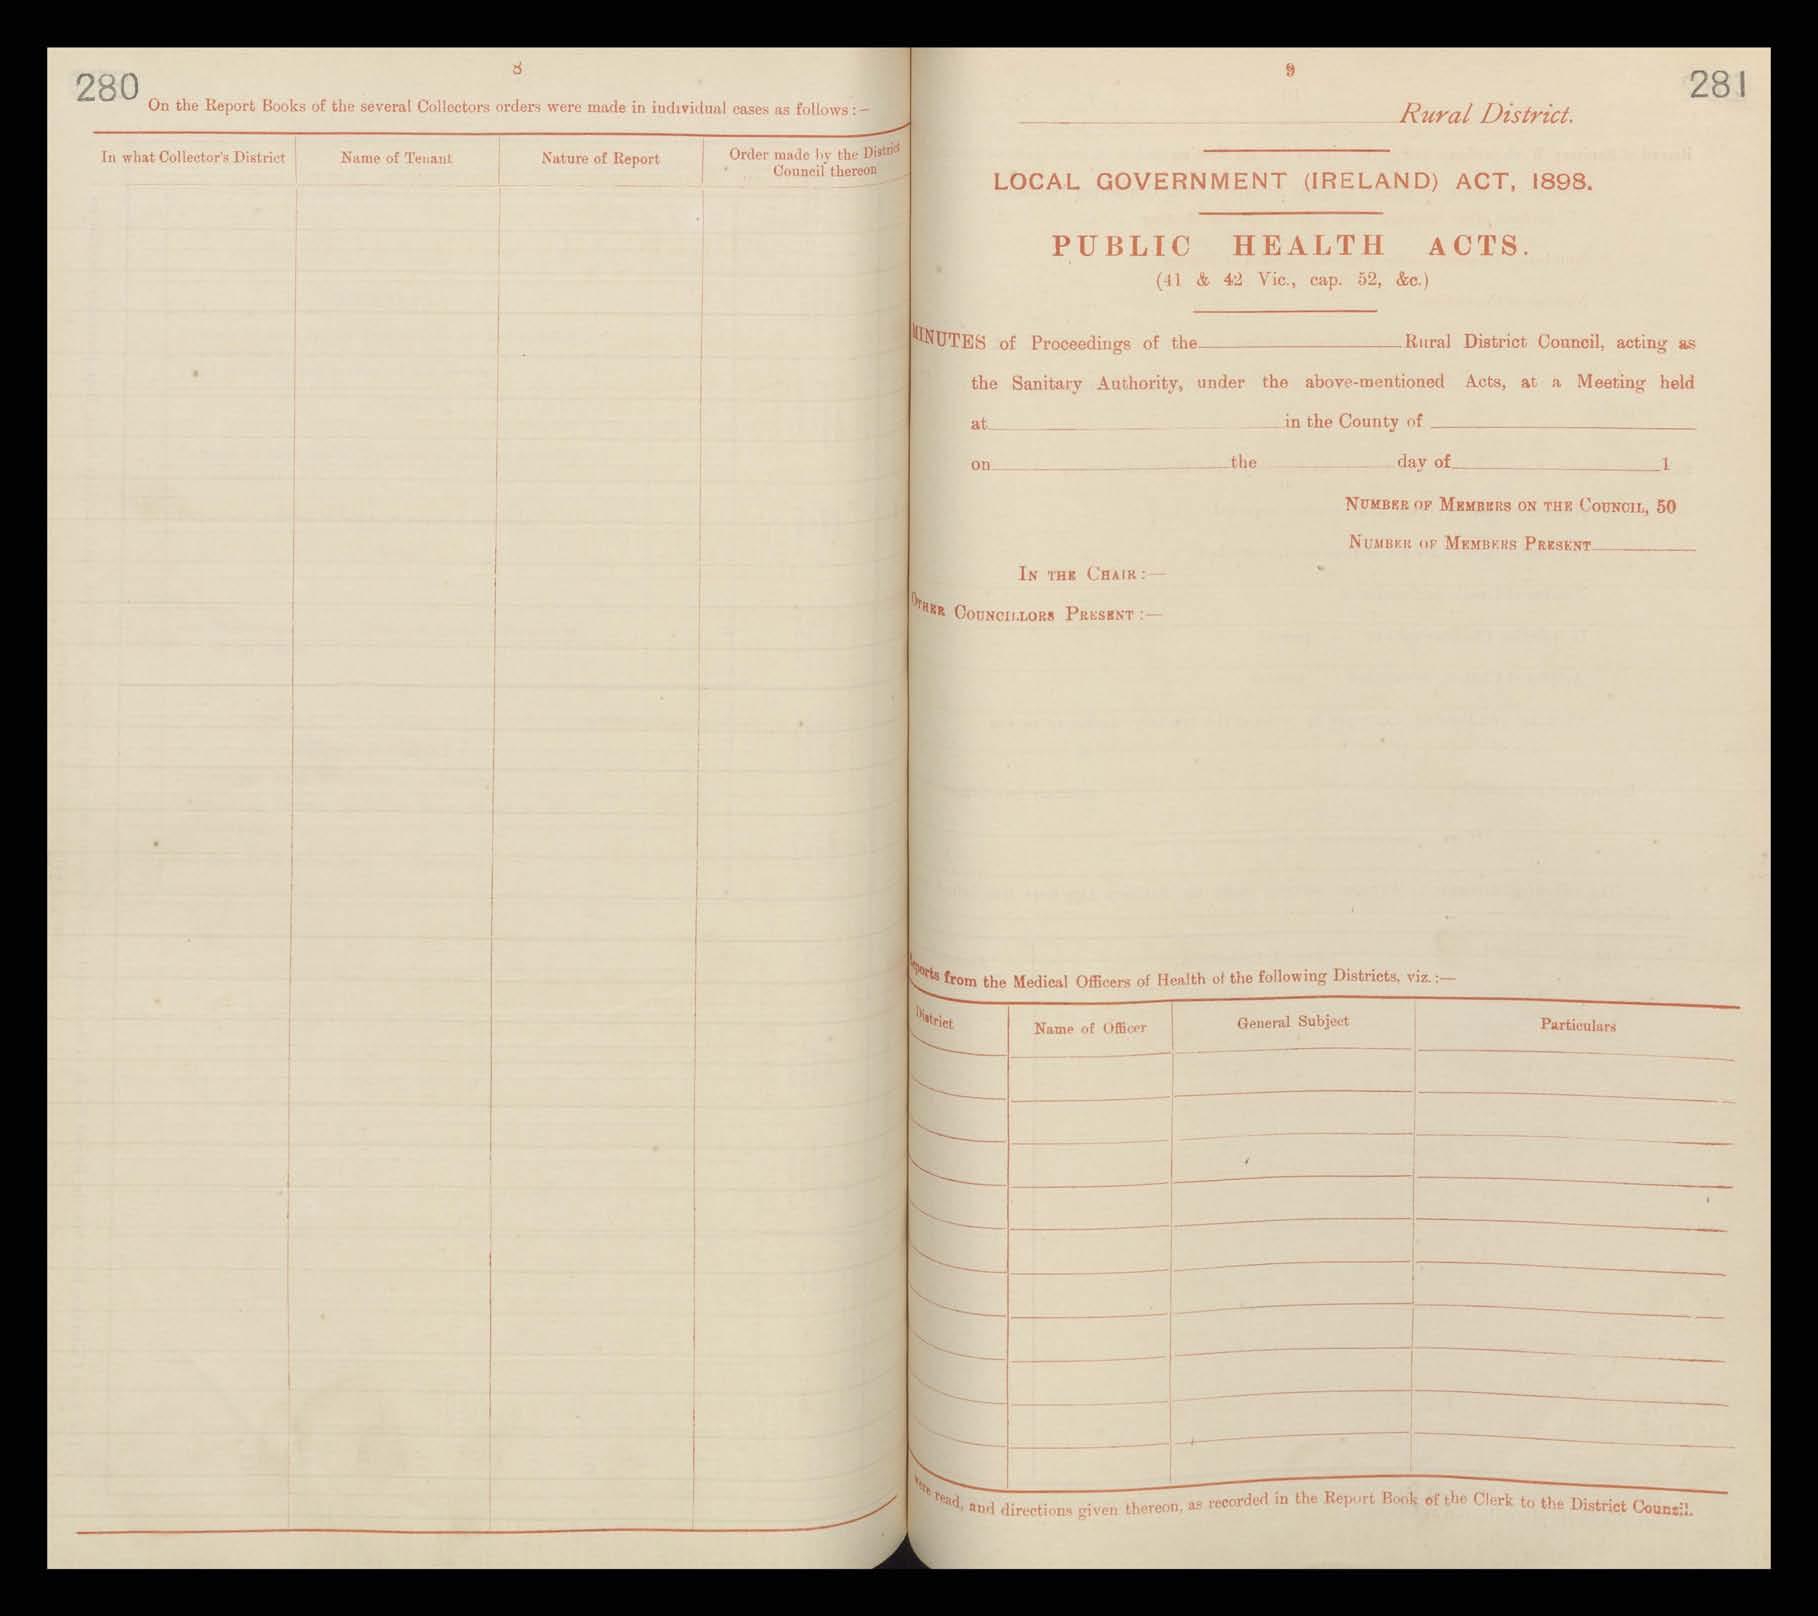 280
8
On the Report Books of the several Collectors orders were made in individual cases as follows :—
In what Collector's District
Name of Tenant
Nature of Report
Order made by the District
Council thereon
9
281
Rural District.
LOCAL GOVERNMENT (IRELAND) ACT, 1898.
PUBLIC HEALTH ACTS.
(41 & 42 Vic., cap. 52, &c.)
MINUTES of Proceedings of the Rural District Council, acting as
the Sanitary Authority, under the above-mentioned Acts, at a Meeting held
at in the County of
on the day of 1
NUMBER OF MEMBERS ON THE COUNCIL, 50
NUMBER OF MEMBERS PRESENT
IN THE CHAIR :—
OTHER COUNCILLORS PRESENT :—
Reports from the Medical Officers of Health of the following Districts, viz. :—
District
Name of Officer
General Subject
Particulars
were read, and directions given thereon, as recorded in the Report Book of the Clerk to the District Council.